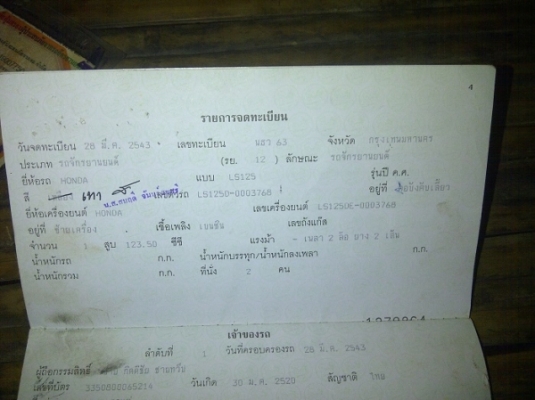 4
รายการจดทะเบียน
วันจดทะเบียน 28 มี.ค. 2543 เลขทะเบียน 63 จังหวัด กรุงเทพมหานคร
ประเภท รถจักรยานยนต์ (รย. 12 ) ลักษณะ รถจักรยานยนต์
ยี่ห้อรถ HONDA แบบ LS125 รุ่นปี ค.ศ.
สี เทา เลขตัวรถ LS1250-0003768 อยู่ที่
ยี่ห้อเครื่องยนต์ HONDA เลขเครื่องยนต์ LS125DE-0003768
อยู่ที่ ข้างเครื่อง เชื้อเพลิง เบนซิน เลขถังแก๊ส
จำนวน 1 สูบ 123.50 ซีซี แรงม้า - เพลา 2 ล้อ ยาง 2 เส้น
น้ำหนักรถ ก.ก. น้ำหนักบรรทุก/น้ำหนักลงเพลา ก.ก.
น้ำหนักรวม ก.ก. ที่นั่ง 2 คน
เจ้าของรถ
ลำดับที่ 1 วันที่ครอบครองรถ 28 มี.ค. 2543
ผู้ถือกรรมสิทธิ์
เลขที่บัตร วันเกิด 30 ม.ค. 2520 สัญชาติ ไทย